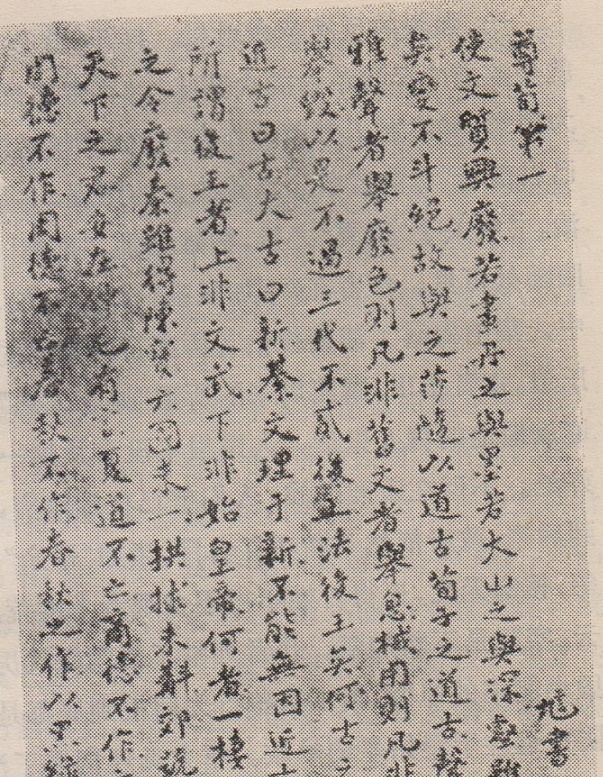 尊荀第一
訄書
使文質興廢若畫丹之與墨若大山之與深壑雖
矣變不斗絕故與之莎隨以道古荀子之道古聲
雅聲者舉廢色則凡非舊文者舉息械用則凡非
舉毀以是不過三代不貳後王法後王矣何古之
近古曰古大古曰新綦文理于新不能無因近古
所謂後王者上非文武下非始皇帝何者一棲
之令廢秦雖得陳寶六國未一拱揖未辭郊號
天下之君安在仲尼有言夏道不亡商德不作
周德不作周德不亡春秋不作春秋之作以黑綠